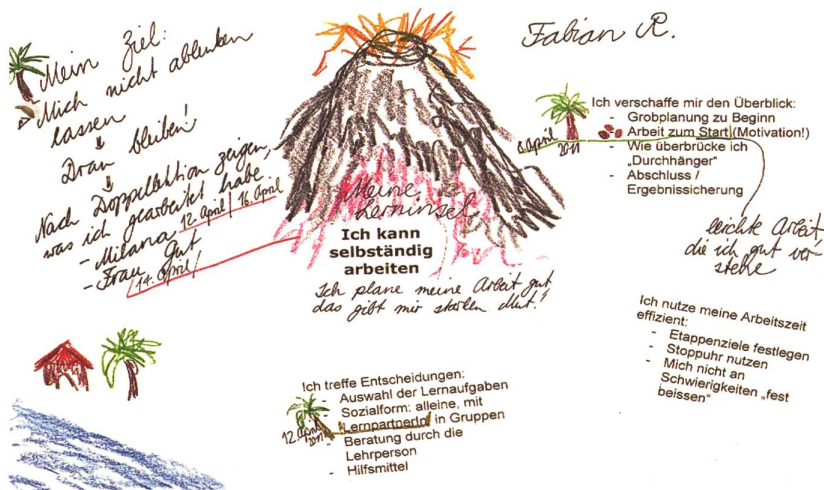 Fabian R.
Mein Ziel:
Mich nicht ablenken
lassen
Dran bleiben!
Nach Doppellektion zeigen,
was ich gearbeitet habe
- Milana 12. April / 16. April
- Frau Gut
14. April /
Meine
Lerninsel
Ich kann
selbständig
arbeiten
Ich plane meine Arbeit gut
das gibt mir starken Mut!
Ich verschaffe mir den Überblick:
- Grobplanung zu Beginn
- Arbeit zum Start (Motivation!)
- Wie überbrücke ich
„Durchhänger"
- Abschluss /
Ergebnissicherung
8. April
2011
leichte Arbeit
die ich gut ver
stehe
Ich nutze meine Arbeitszeit
effizient:
- Etappenziele festlegen
- Stoppuhr nutzen
- Mich nicht an
Schwierigkeiten „fest
beissen"
Ich treffe Entscheidungen:
- Auswahl der Lernaufgaben
- Sozialform: alleine, mit
LernpartnerIn, in Gruppen
- Beratung durch die
Lehrperson
- Hilfsmittel
12. April
2011